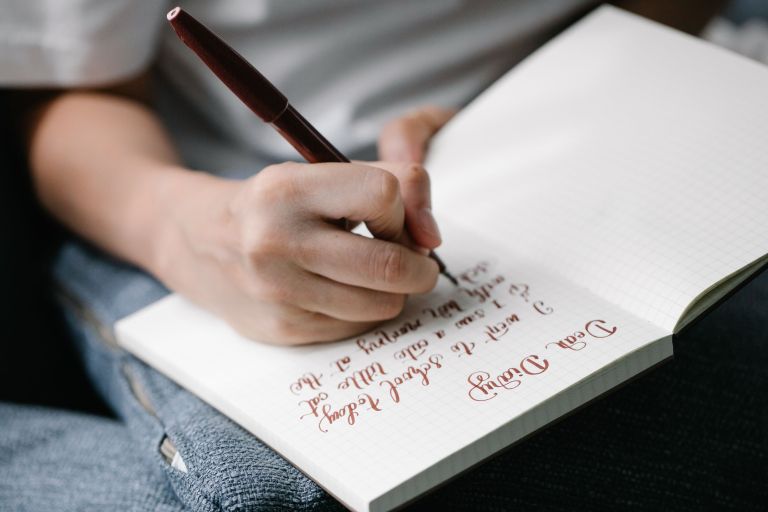 Dear Diary
I went to school today
& I saw a cute little cat
with his mommy at the